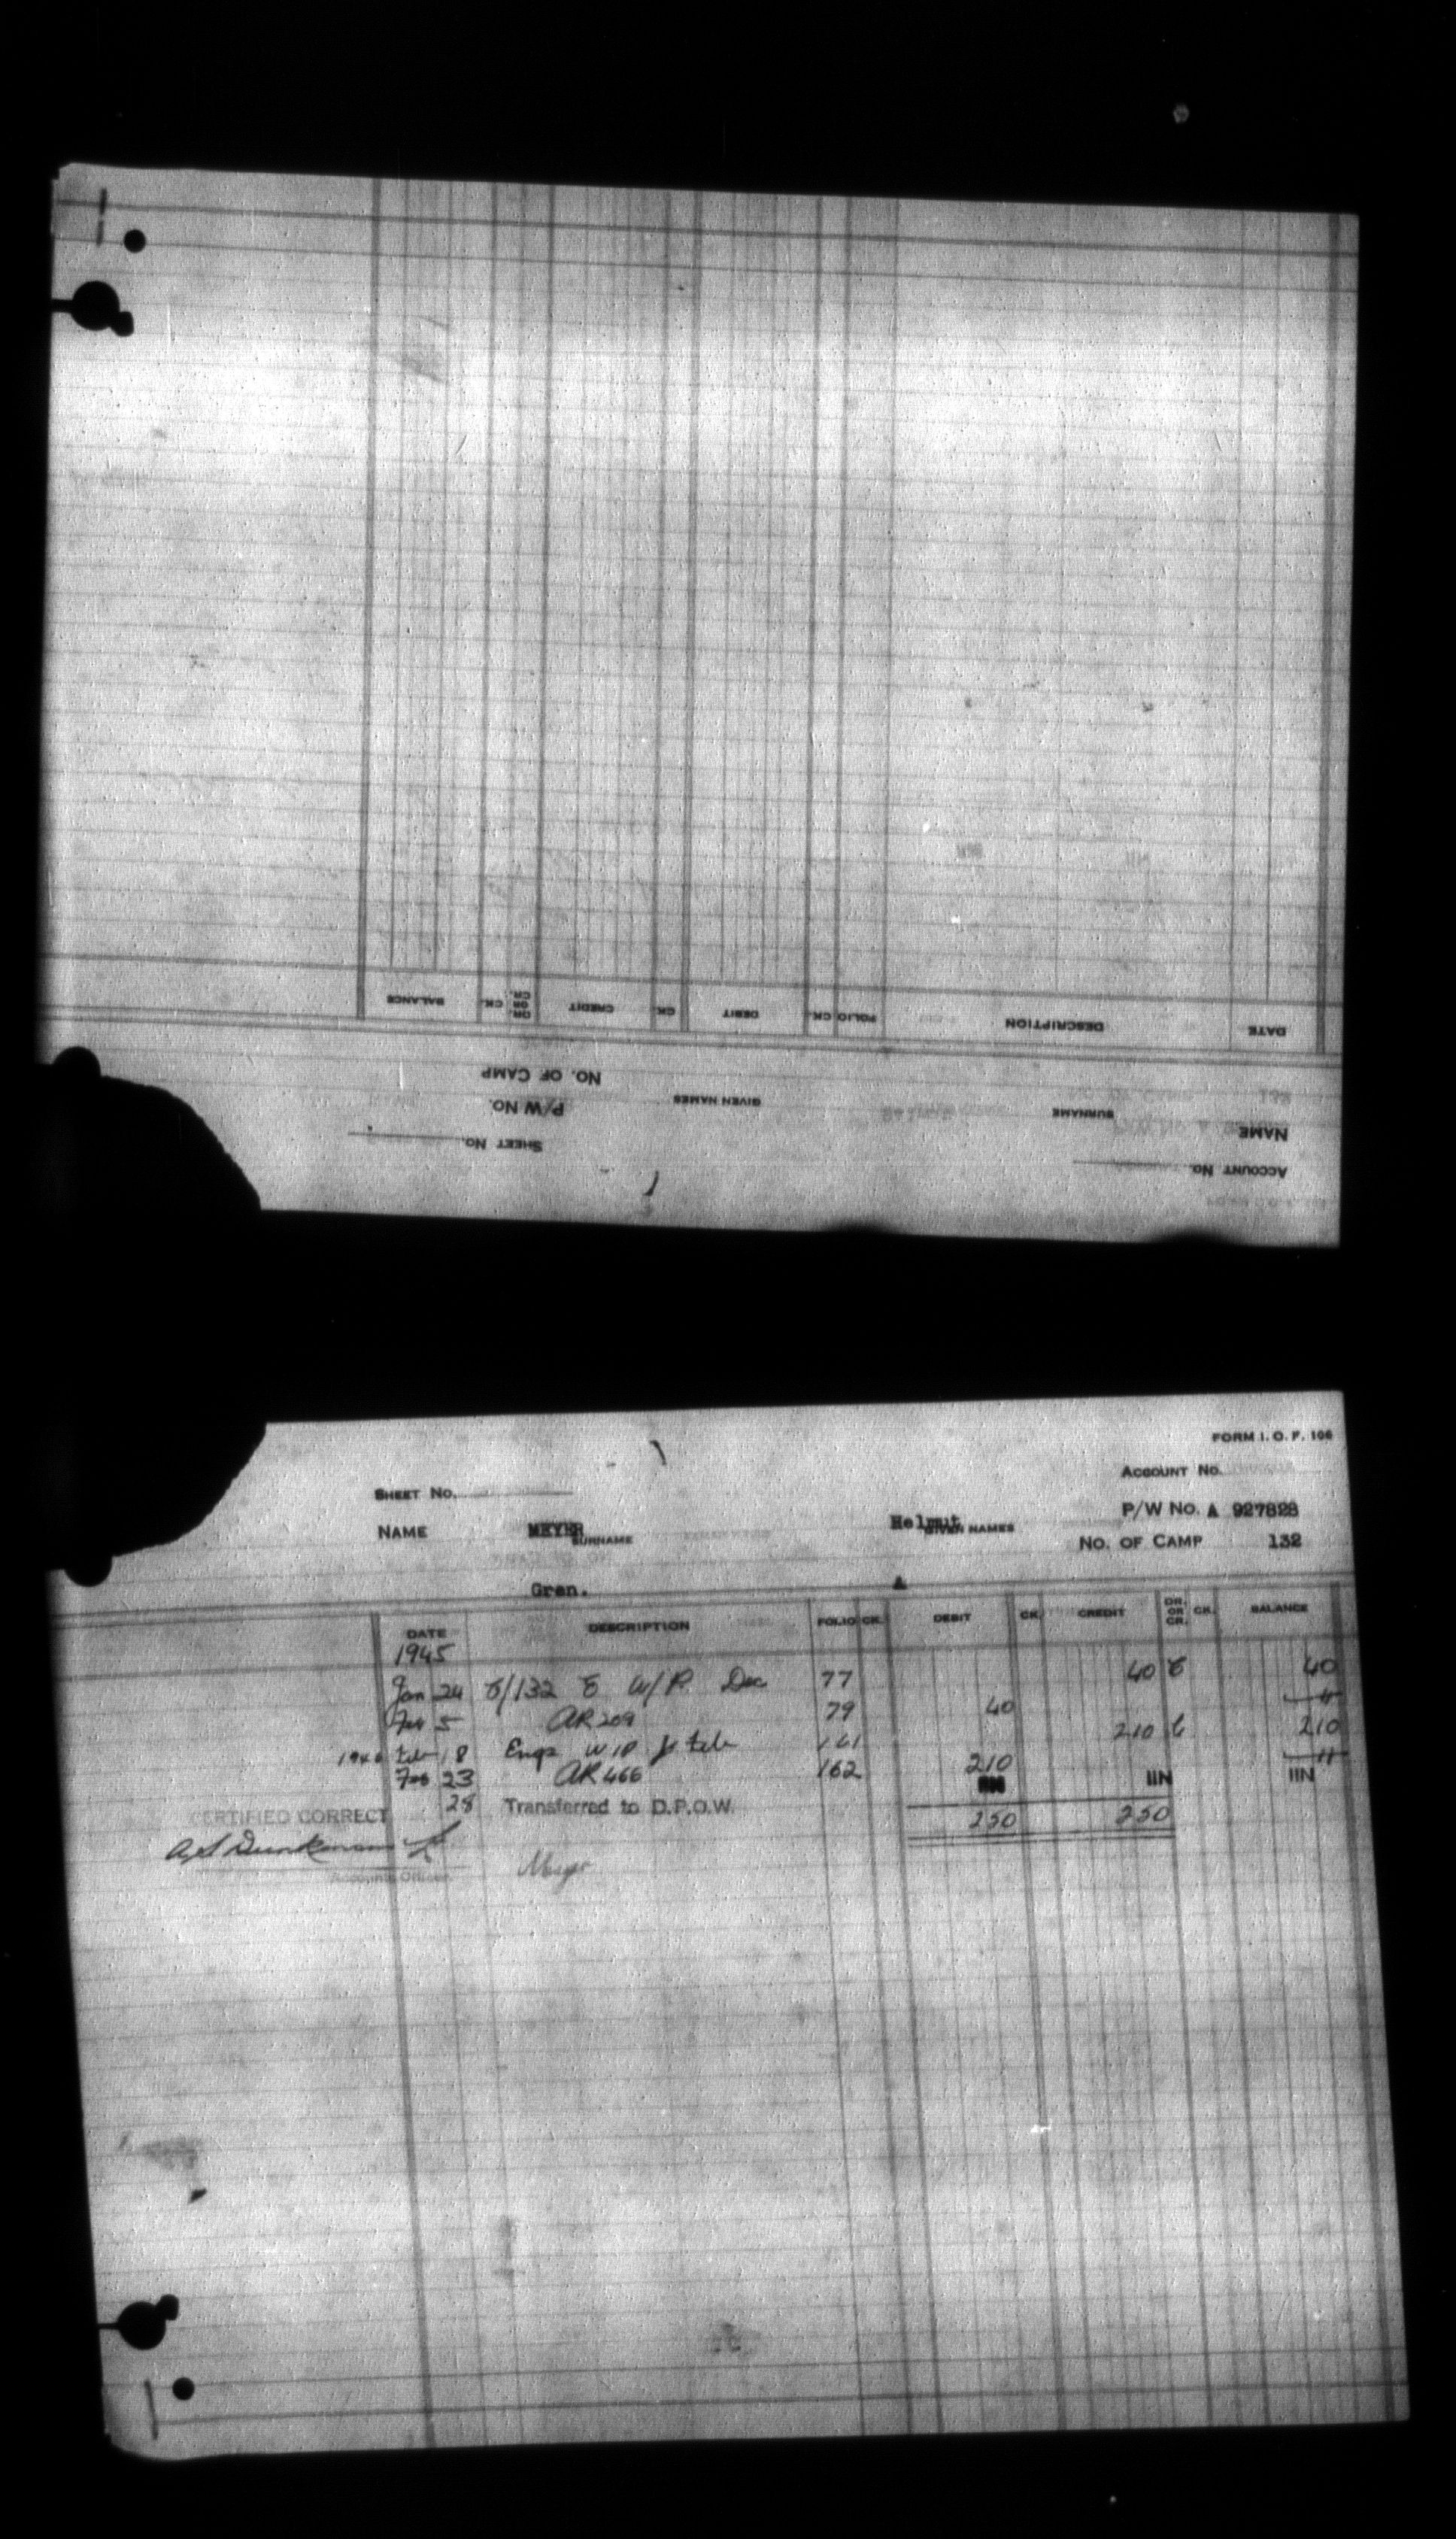 BALANCE CK. DR. OR CR. CREDIT CK. DEBIT CK. FOLIO DESCRIPTION DATE
NO. OF CAMP
P/W NO. GIVEN NAMES SURNAME NAME
SHEET NO. ACCOUNT NO.
FORM I. O. F. 106
ACCOUNT NO.
SHEET NO.
P/W NO. A 927828
NAME MEYER Helmut
SURNAME GIVEN NAMES
NO. OF CAMP 132
Gren. A
DATE DESCRIPTION FOLIO CK. DEBIT CK. CREDIT DR. OR CR. CK. BALANCE
1945
Jan 24 /132 W/P Dec 77 40 40
Feb 5 AR 209 79 40
1946 Feb 18 W/P Feb 161 210 210
Feb 23 AR 466 162 210
28 Transferred to D.P.O.W. IIN IIN
250 250
CERTIFIED CORRECT
Accounts Officer